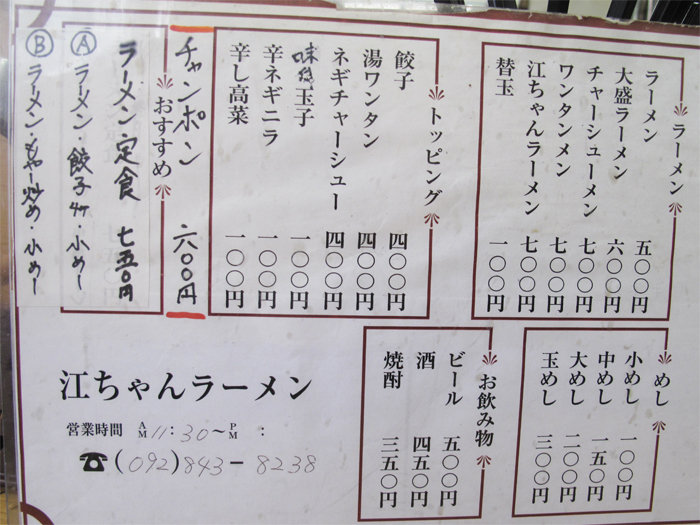 ラーメン
ラーメン 五〇〇円
大盛ラーメン 六〇〇円
チャーシューメン 七〇〇円
ワンタンメン 七〇〇円
江ちゃんラーメン 七〇〇円
替玉 一〇〇円
トッピング
餃子 四〇〇円
湯ワンタン 四〇〇円
ネギチャーシュー 四〇〇円
味付玉子 一〇〇円
辛ネギニラ 一〇〇円
辛し高菜 一〇〇円
チャンポン 六〇〇円
おすすめ
ラーメン定食 七五〇円
Ⓐ ラーメン・餃子4ケ・小めし
Ⓑ ラーメン・もやし炒め・小めし
めし
小めし 一〇〇円
中めし 一五〇円
大めし 二〇〇円
玉めし 三〇〇円
お飲み物
ビール 五〇〇円
酒 四五〇円
焼酎 三五〇円
江ちゃんラーメン
営業時間 AM 11:30〜PM :
☎(092)843-8238